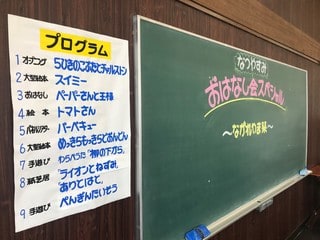 プログラム
1 オープニング 5ひきのこぶたとチャールストン
2 大型絵本 スイミー
3 おはなし ペーパーさんと王様
4 絵本 トマトさん
5 パネルシアター バーベキュー
6 大型絵本 めっきらもっきらどおんどん
7 手遊び わらべうた"柳の下から"
8 紙芝居 "ライオンとねずみ"
"ありとはと"
9 手遊び ぺんぎんたいそう
なつやすみ
おはなし会スペシャル
〜ながれいま泉〜